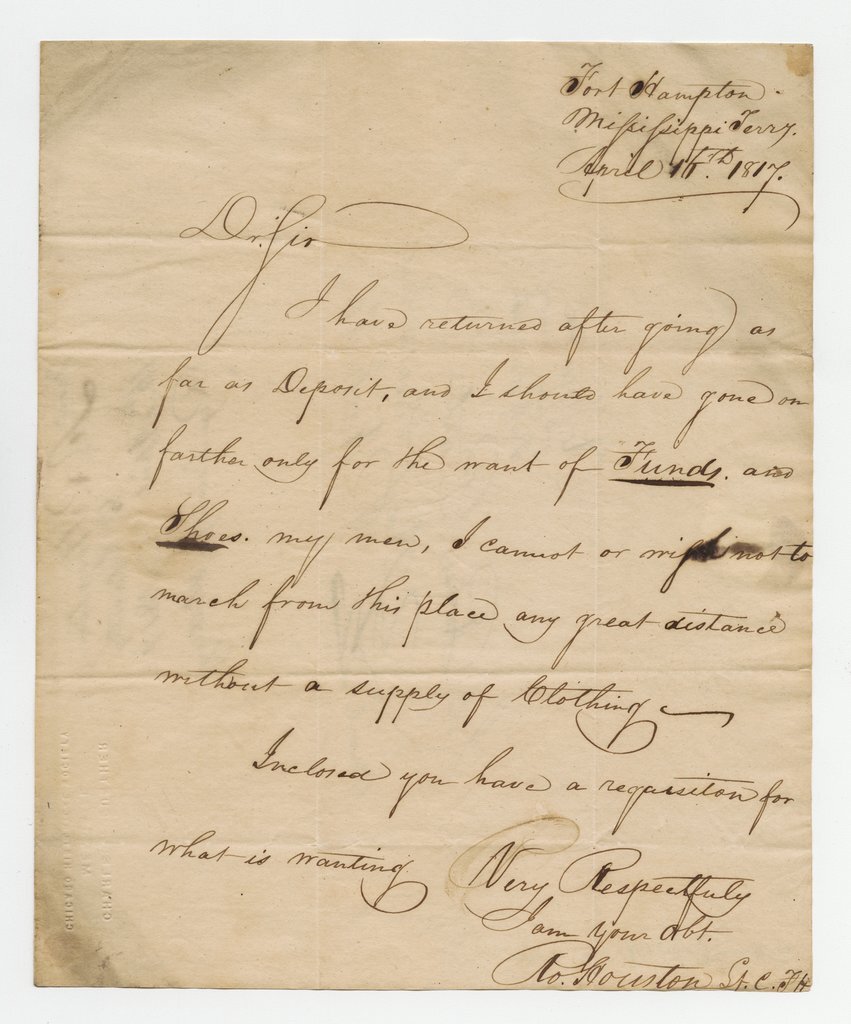 Fort Hampton
Missisippi Terry.
April 16.th 1817.
Dr. Sir
I have returned after going as
far as Deposit, and I should have gone on
farther only for the want of Funds. and
Shoes. my men, I cannot or wish not to
march from this place any great distance
without a supply of Clothing
Inclosed you have a requisiton for
what is wanting
Very Respectfuly
I am your obt.
Ro. Houston Lt. C. F H
CHICAGO HISTORICAL SOCIETY